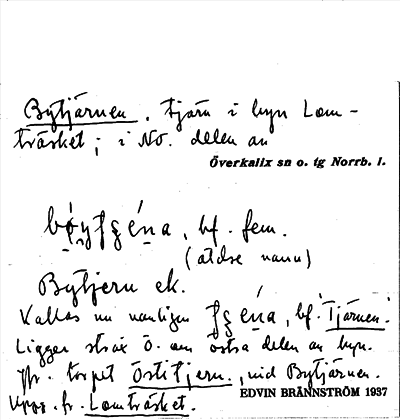 Bytjärnen, tjärn i byn Lom-
träsket; i NO. delen av
Överkalix sn o. tg Norrb. l.
bf. fem.
(äldre namn)
Bytjern ek.
Kallas nu vanligen bf. 'Tjärnen'.
Ligger strax Ö. om östra delen av byn.
Jfr. torpet Östitjern, vid Bytjärnen.
EDVIN BRÄNNSTRÖM 1937
Uppg. fr. Lomträsket.